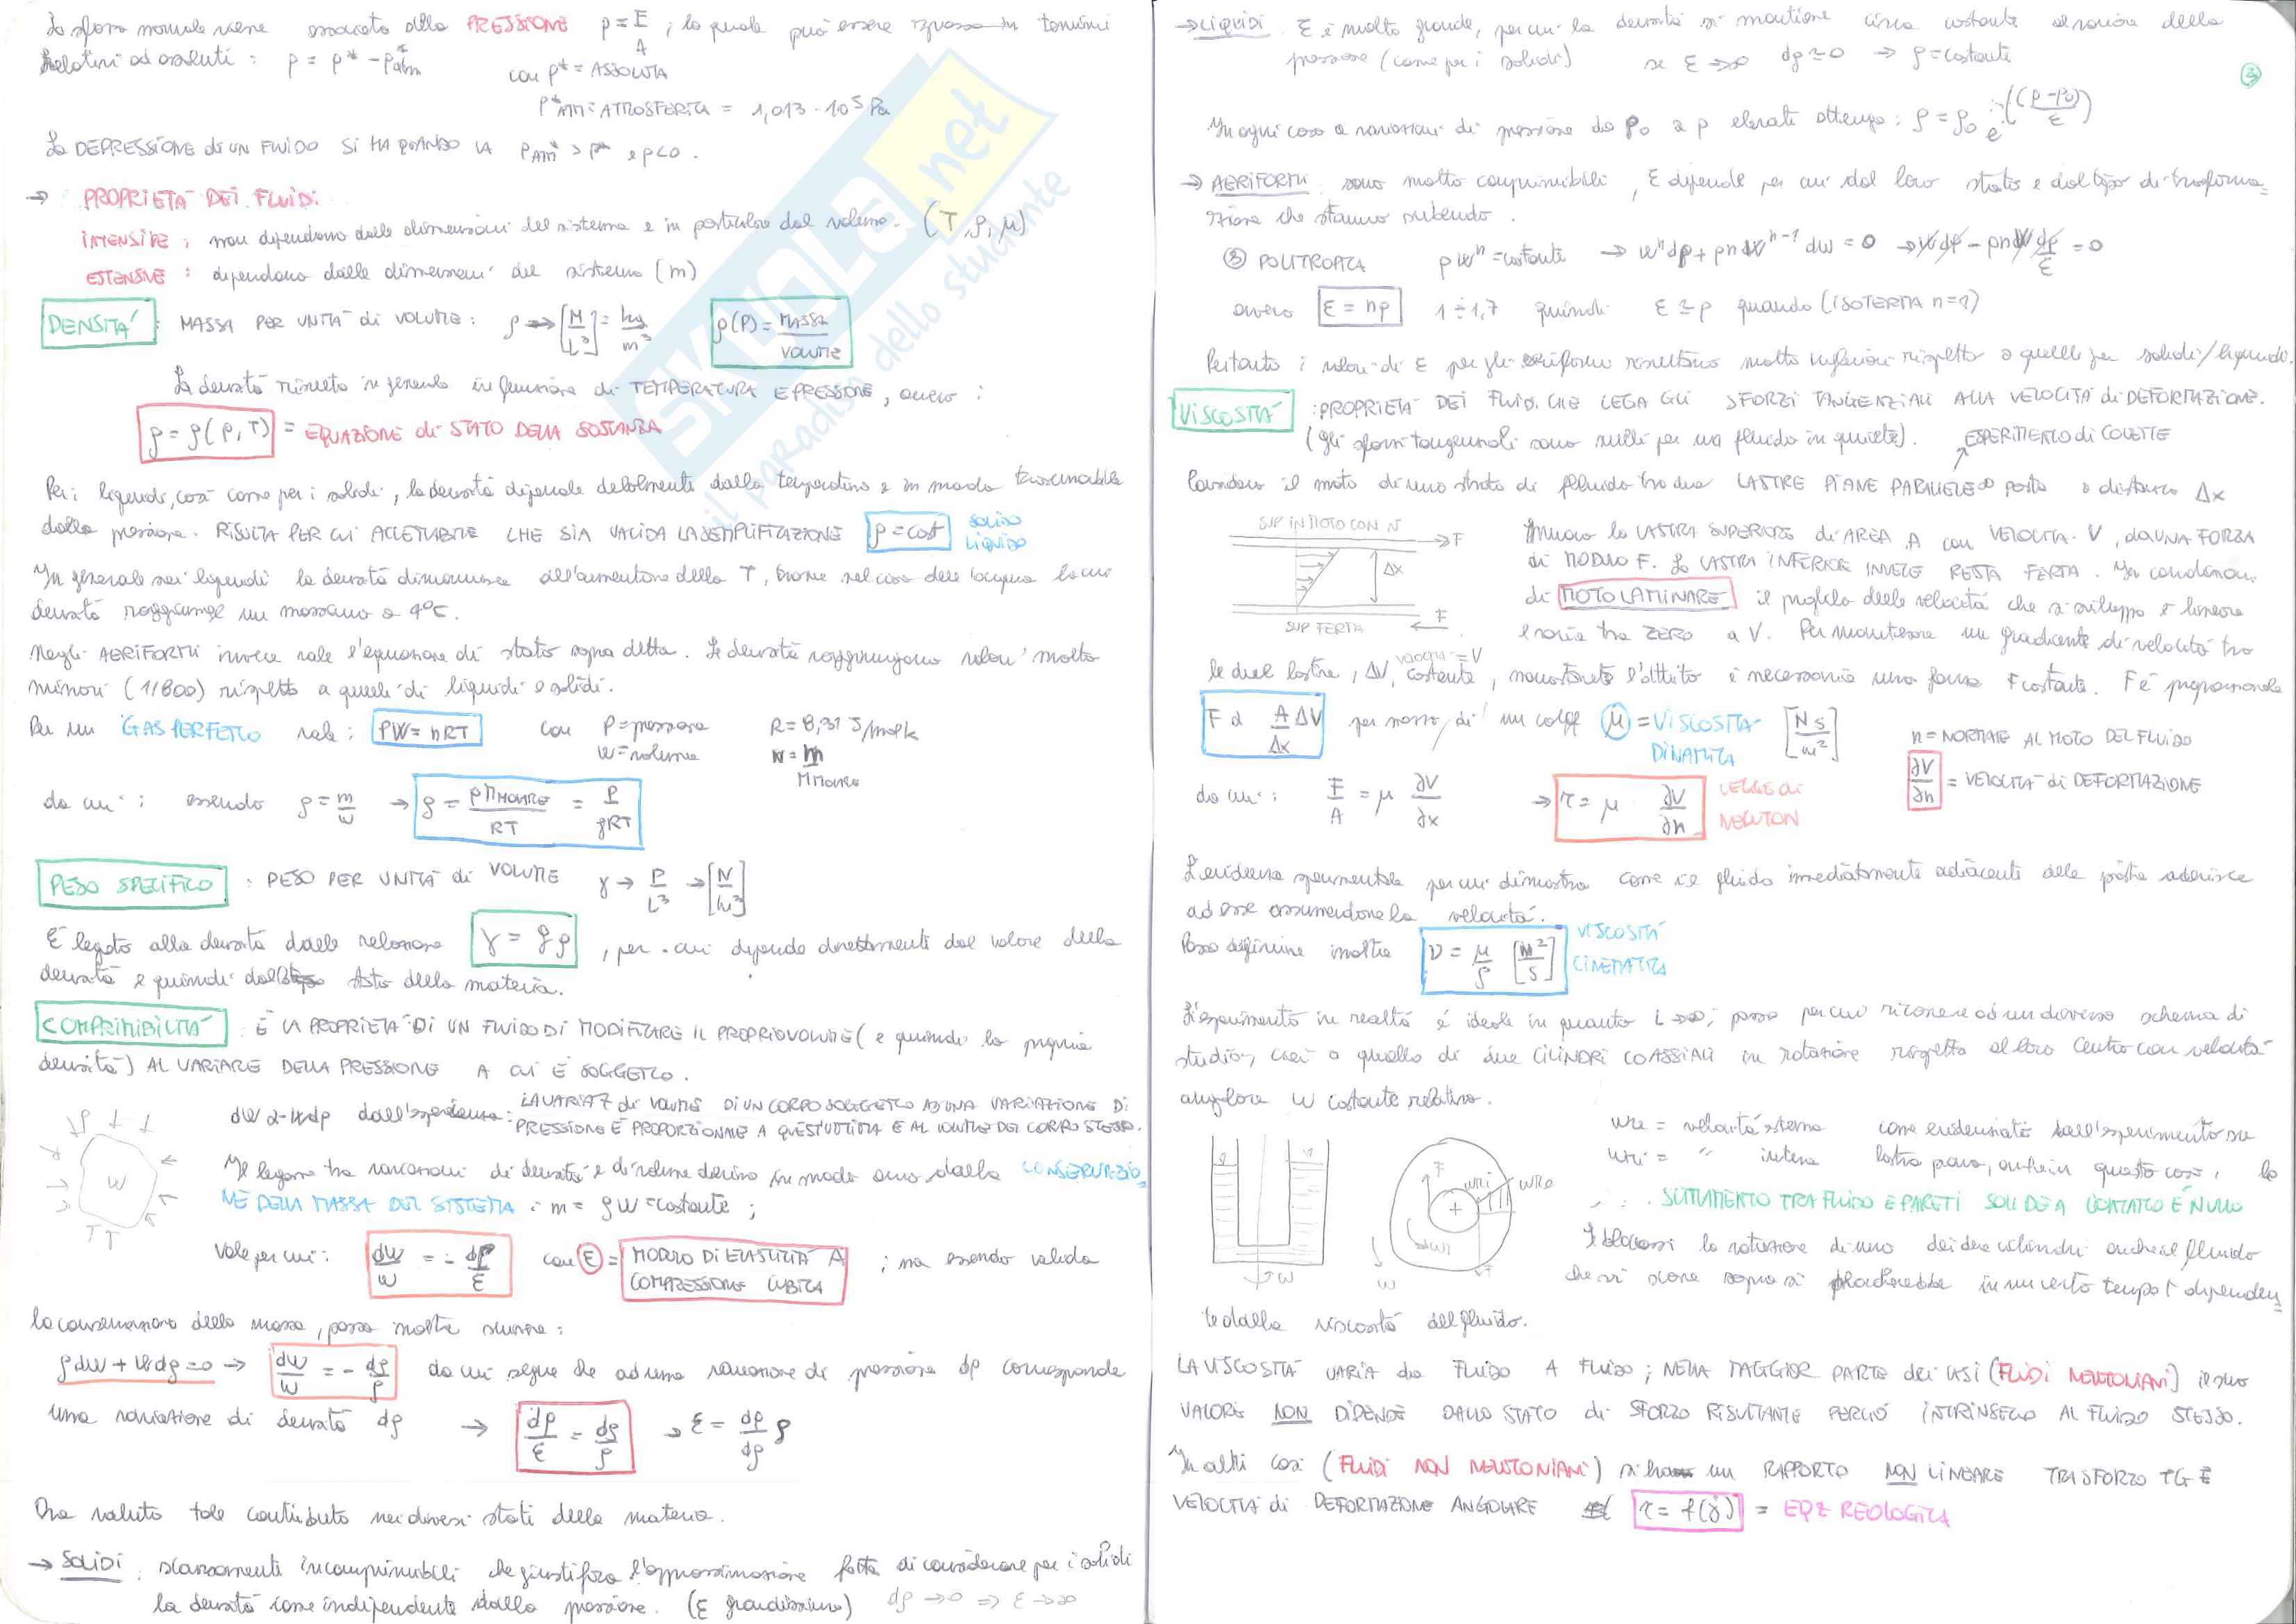 Lo sforzo normale viene associato alla PRESSIONE p = F/A ; la quale può essere espressa in termini
Relativi ed assoluti : p = p* - p*atm con p* = ASSOLUTA
P*ATM = ATMOSFERICA = 1,013 · 10^5 Pa
La DEPRESSIONE di UN FLUIDO SI HA QUANDO LA PATM* > P* e p<0.
→ PROPRIETÀ DEI FLUIDI:
INTENSIVE : non dipendono dalle dimensioni del sistema e in particolare dal volume. (T, ρ, μ)
ESTENSIVE : dipendono dalle dimensioni del sistema (m)
DENSITÀ : MASSA PER UNITÀ di VOLUME : ρ → [M/L³] = kg/m³ ρ(P) = MASSA/VOLUME
La densità risulta in generale in funzione di TEMPERATURA E PRESSIONE, ovvero :
ρ = ρ(p,T) = EQUAZIONE di STATO DELLA SOSTANZA
Per i liquidi, così come per i solidi, la densità dipende debolmente dalla temperatura e in modo trascurabile
dalla pressione. RISULTA PER CUI ACCETTABILE CHE SIA VALIDA LA SEMPLIFICAZIONE ρ = cost SOLIDO LIQUIDO
In generale nei liquidi la densità diminuisce all'aumentare della T, tranne nel caso dell'acqua la cui
densità raggiunge un massimo a 4°C.
Negli AERIFORMI invece vale l'equazione di stato sopra detta. Le densità raggiungono valori molto
minori (1/800) rispetto a quelli di liquidi e solidi.
Per un GAS PERFETTO vale : PW = nRT con P = pressione R = 8,31 J/molK
W = volume n = m/Mmolare
da cui : essendo ρ = m/W → ρ = PMmolare/RT = P/gRT
PESO SPECIFICO : PESO PER UNITÀ di VOLUME γ → P/L³ → [N/m³]
È legato alla densità dalla relazione γ = gρ , per cui dipende direttamente dal valore della
densità e quindi dallo stato della materia.
COMPRIMIBILITÀ : È LA PROPRIETÀ DI UN FLUIDO DI MODIFICARE IL PROPRIO VOLUME ( e quindi la propria
densità) AL VARIARE DELLA PRESSIONE A CUI È SOGGETTO.
p W
dW α -Wdp dall'esperienza : LA VARIAZ di VOLUME DI UN CORPO SOGGETTO AD UNA VARIAZIONE DI
PRESSIONE È PROPORZIONALE A QUEST'ULTIMA E AL VOLUME DEL CORPO STESSO.
Il legame tra variazioni di densità e di volume deriva in modo ovvio dalla CONSERVAZIO
NE DELLA MASSA DEL SISTEMA : m = ρW = costante ;
Vale per cui : dW/W = - dp/ε con ε = MODULO DI ELASTICITÀ A COMPRESSIONE CUBICA ; ma essendo valida
la conservazione della massa, posso inoltre scrivere :
ρdW + Wdρ = 0 → dW/W = - dρ/ρ da cui segue che ad una variazione di pressione dp corrisponde
una variazione di densità dρ → dp/ε = dρ/ρ → ε = dp/dρ ρ
Ora valuto tale contributo nei diversi stati della materia.
→ SOLIDI : scarsamente incomprimibili che giustifica l'approssimazione fatta di considerare per i solidi
la densità come indipendente dalla pressione. (ε grandissimo) dρ → 0 ⇒ ε → ∞
→ LIQUIDI : ε è molto grande, per cui la densità si mantiene circa costante al variare della
pressione (come per i solidi) se ε → ∞ dρ ≃ 0 → ρ = costante
3
In ogni caso a variazioni di pressione da p0 a p elevate ottengo : ρ = ρ0 e^((p-p0)/ε)
→ AERIFORMI : sono molto comprimibili, ε dipende per cui dal loro stato e dal tipo di trasforma=
zione che stanno subendo.
③ POLITROPICA pWⁿ = costante → Wⁿdp + pnWⁿ⁻¹ dW = 0 → Wdp - pnW dp/ε = 0
ovvero ε = np 1 ÷ 1,7 quindi ε ≃ p quando (ISOTERMA n=1)
Pertanto i valori di ε per gli aeriformi risultano molto inferiori rispetto a quelli per solidi/liquidi.
VISCOSITÀ : PROPRIETÀ DEI FLUIDI CHE LEGA GLI SFORZI TANGENZIALI ALLA VELOCITÀ di DEFORMAZIONE.
(Gli sforzi tangenziali sono nulli per un fluido in quiete). ESPERIMENTO di COUETTE
Considero il moto di uno strato di fluido tra due LASTRE PIANE PARALLELE ∞ poste a distanza Δx
SUP IN MOTO CON V
F
Δx
F
SUP FERMA
Muovo la LASTRA SUPERIORE di AREA A con VELOCITÀ V, da UNA FORZA
di MODULO F. La LASTRA INFERIORE INVECE RESTA FERMA. In condizioni
di MOTO LAMINARE il profilo delle velocità che si sviluppa è lineare
e varia tra ZERO a V. Per mantenere un gradiente di velocità tra
le due lastre, ΔV, costante, nonostante l'attrito è necessaria una forza F costante. F è proporzionale
F α A/Δx ΔV per mezzo di un coeff μ = VISCOSITÀ DINAMICA [Ns/m²]
n = NORMALE AL MOTO DEL FLUIDO
∂V/∂n = VELOCITÀ di DEFORMAZIONE
da cui : F/A = μ ∂V/∂x → τ = μ ∂V/∂n LEGGE di NEWTON
L'evidenza sperimentale per cui dimostra come il fluido immediatamente adiacente alla piastra aderisce
ad esse assumendone la velocità.
Posso definire inoltre ν = μ/ρ [M²/S] VISCOSITÀ CINEMATICA
L'esperimento in realtà è ideale in quanto L → ∞; posso per cui ricorrere ad un diverso schema di
studio, cioè a quello di due CILINDRI COASSIALI in rotazione rispetto al loro centro con velocità
angolare ω costante relativa.
ω
ωri ωre
ω
ωre = velocità esterna come evidenziato dall'esperimento su
ωri = " interna lastra piana, anche in questo caso, lo
SLITTAMENTO TRA FLUIDO E PARETI SOLIDE A CONTATTO È NULLO
Se bloccassi la rotazione di uno dei due cilindri anche il fluido
che vi scorre sopra si placherebbe in un certo tempo t dipenden=
te dalla viscosità del fluido.
LA VISCOSITÀ VARIA da FLUIDO A FLUIDO ; NELLA MAGGIOR PARTE dei CASI (FLUIDI NEWTONIANI) il suo
VALORE NON DIPENDE DALLO STATO di SFORZO RISULTANTE PERCIÒ INTRINSECO AL FLUIDO STESSO.
In altri casi (FLUIDI NON NEWTONIANI) si ha un RAPPORTO NON LINEARE TRA SFORZO TG E
VELOCITÀ di DEFORMAZIONE ANGOLARE τ = f(γ̇) = EQZ REOLOGICA
SKUOLA.net
il paradiso dello studente